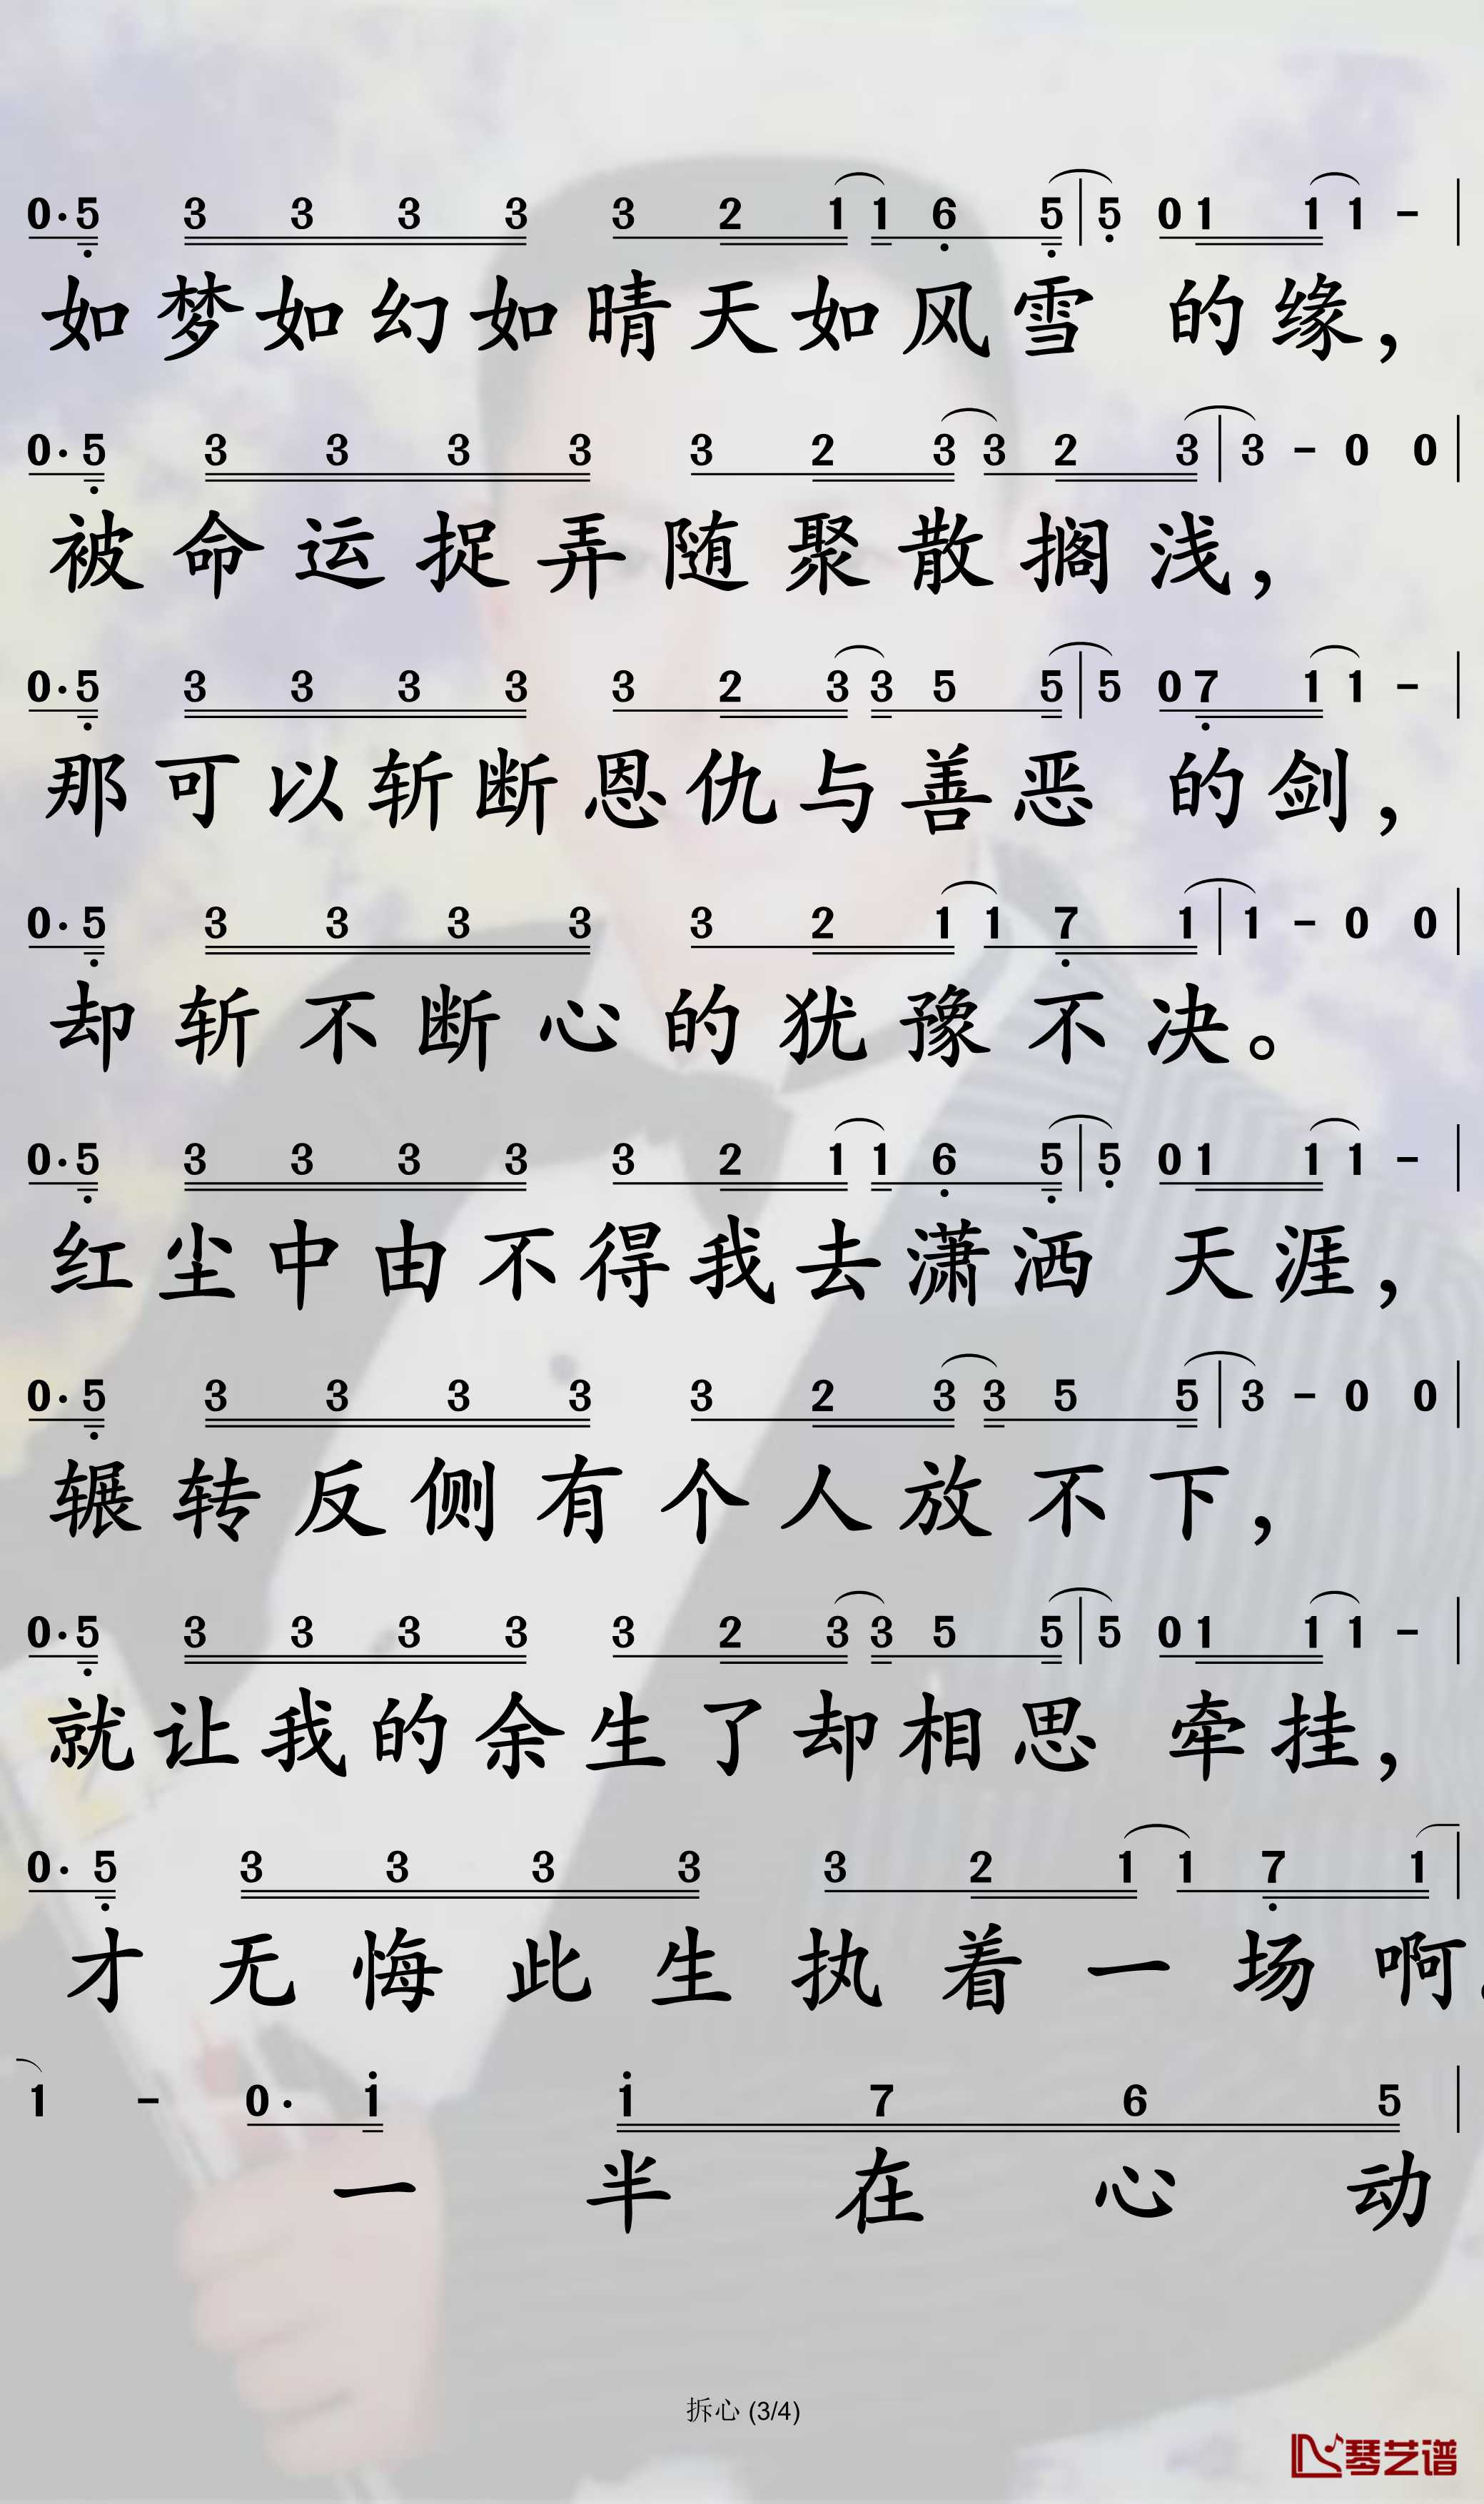 0·5 3 3 3 3 3 2 1 1 6 5 | 5 0 1 1 1 - |
如梦如幻如晴天如风雪 的缘，
0·5 3 3 3 3 3 2 3 3 2 3 | 3 - 0 0 |
被命运捉弄随聚散搁浅，
0·5 3 3 3 3 3 2 3 3 5 5 | 5 0 7 1 1 - |
那可以斩断恩仇与善恶 的剑，
0·5 3 3 3 3 3 2 1 1 7 1 | 1 - 0 0 |
却斩不断心的犹豫不决。
0·5 3 3 3 3 3 2 1 1 6 5 | 5 0 1 1 1 - |
红尘中由不得我去潇洒 天涯，
0·5 3 3 3 3 3 2 3 3 5 5 | 3 - 0 0 |
辗转反侧有个人放不下，
0·5 3 3 3 3 3 2 3 3 5 5 | 5 0 1 1 1 - |
就让我的余生了却相思 牵挂，
0·5 3 3 3 3 3 2 1 1 7 1 |
才无悔此生执着一场啊。
1 - 0· 1 1 7 6 5 |
一半在心动
拆心 (3/4)
琴艺谱